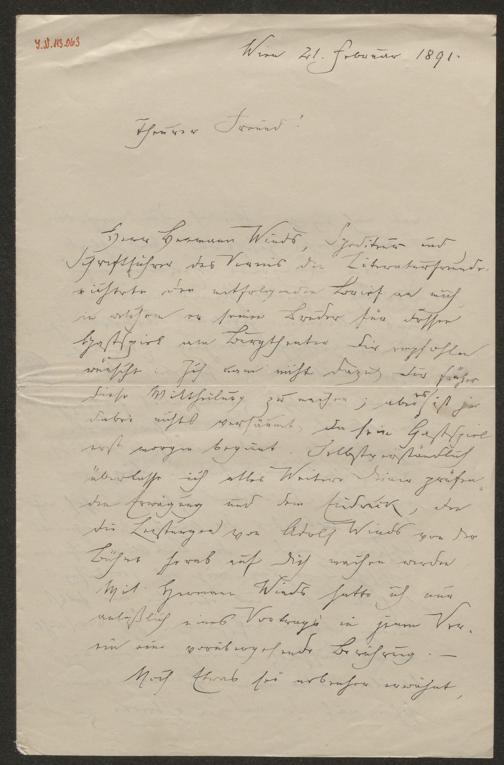 J.N. 113.063
Wien 21. Februar 1891.
Theurer Freund!
Herr Hermann Winds, Spediteur und
Schriftführer des Vereins der Literaturfreunde
richtete den mitfolgenden Brief an mich
in welchem er seinen Bruder für dessen
Gastspiel am Burgtheater Dir empfohlen
wünscht. Ich kam nicht dazu, Dir früher
diese Mittheilung zu machen; aber es ist ja
dabei nichts versäumt, da sein Gastspiel
erst morgen beginnt. Selbstverständlich
überlasse ich alles Weitere Deiner prüfen-
den Erwägung und dem Eindruck, den
die Leistungen von Adolf Winds von der
Bühne herab auf Dich machen werden.
Mit Hermann Winds hatte ich nur
anläßlich eines Vortrags in jenem Ver-
ein eine vorübergehende Berührung. —
Noch Etwas sei nebenher erwähnt,